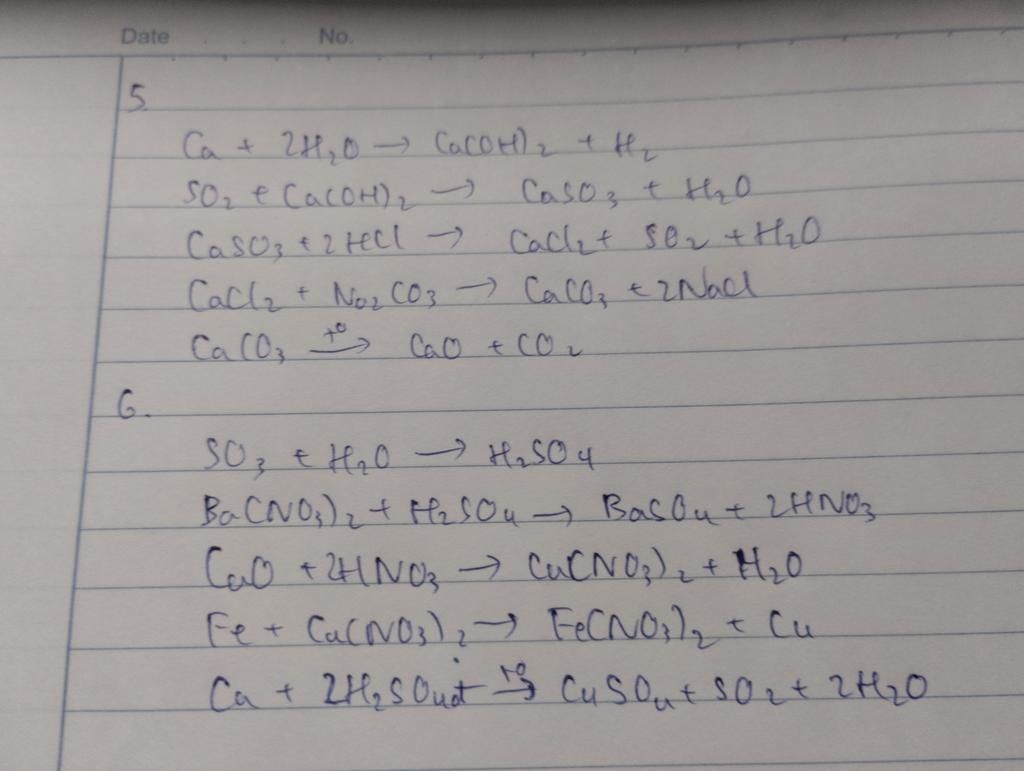 Date No.
5
Ca + 2H₂O → Ca(OH)₂ + H₂
SO₂ + Ca(OH)₂ → CaSO₃ + H₂O
CaSO₃ + 2HCl → CaCl₂ + SO₂ + H₂O
CaCl₂ + Na₂CO₃ → CaCO₃ + 2NaCl
CaCO₃ t⁰→ CaO + CO₂
6.
SO₃ + H₂O → H₂SO₄
Ba(NO₃)₂ + H₂SO₄ → BaSO₄ + 2HNO₃
CuO + 2HNO₃ → Cu(NO₃)₂ + H₂O
Fe + Cu(NO₃)₂ → Fe(NO₃)₂ + Cu
Cu + 2H₂SO₄đ t⁰→ CuSO₄ + SO₂ + 2H₂O